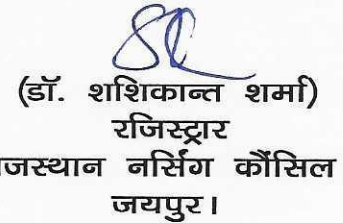 (डॉ. शशिकान्त शर्मा)
रजिस्ट्रार
नर्सिंग कौंसिल
जयपुर।